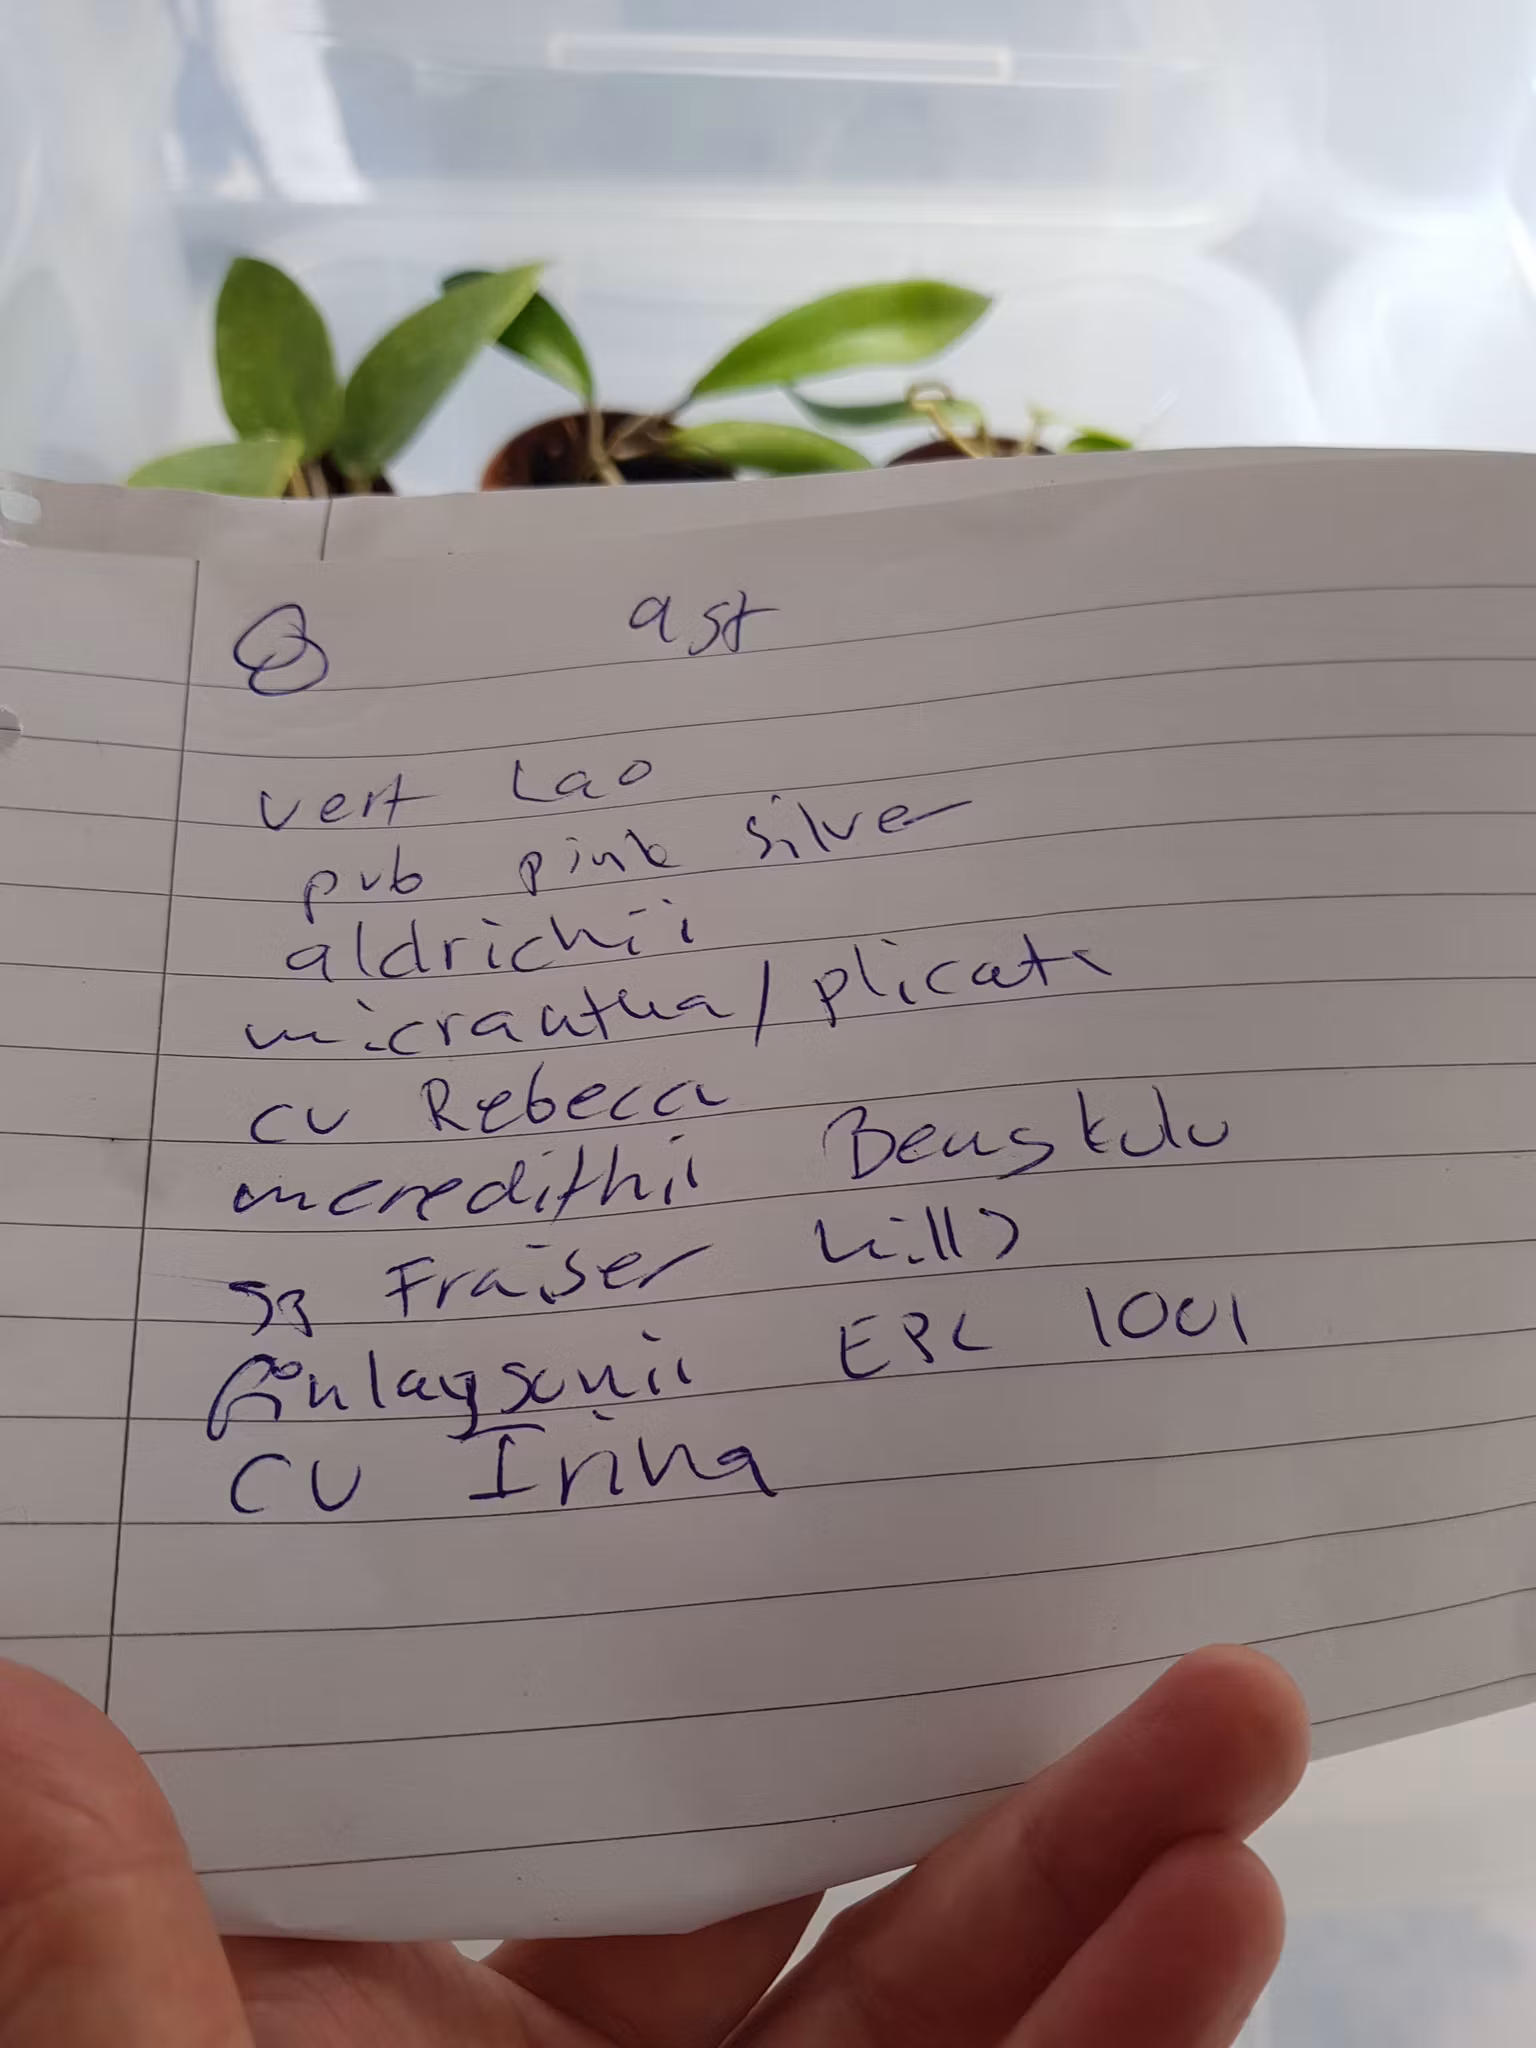 ast
vert Lao
pub pink silver
aldrichii
micrantha/plicata
cv Rebecca
meredithii Bengkulu
sq Fraiser hills
finlaysonii EPC 1001
cv Irina